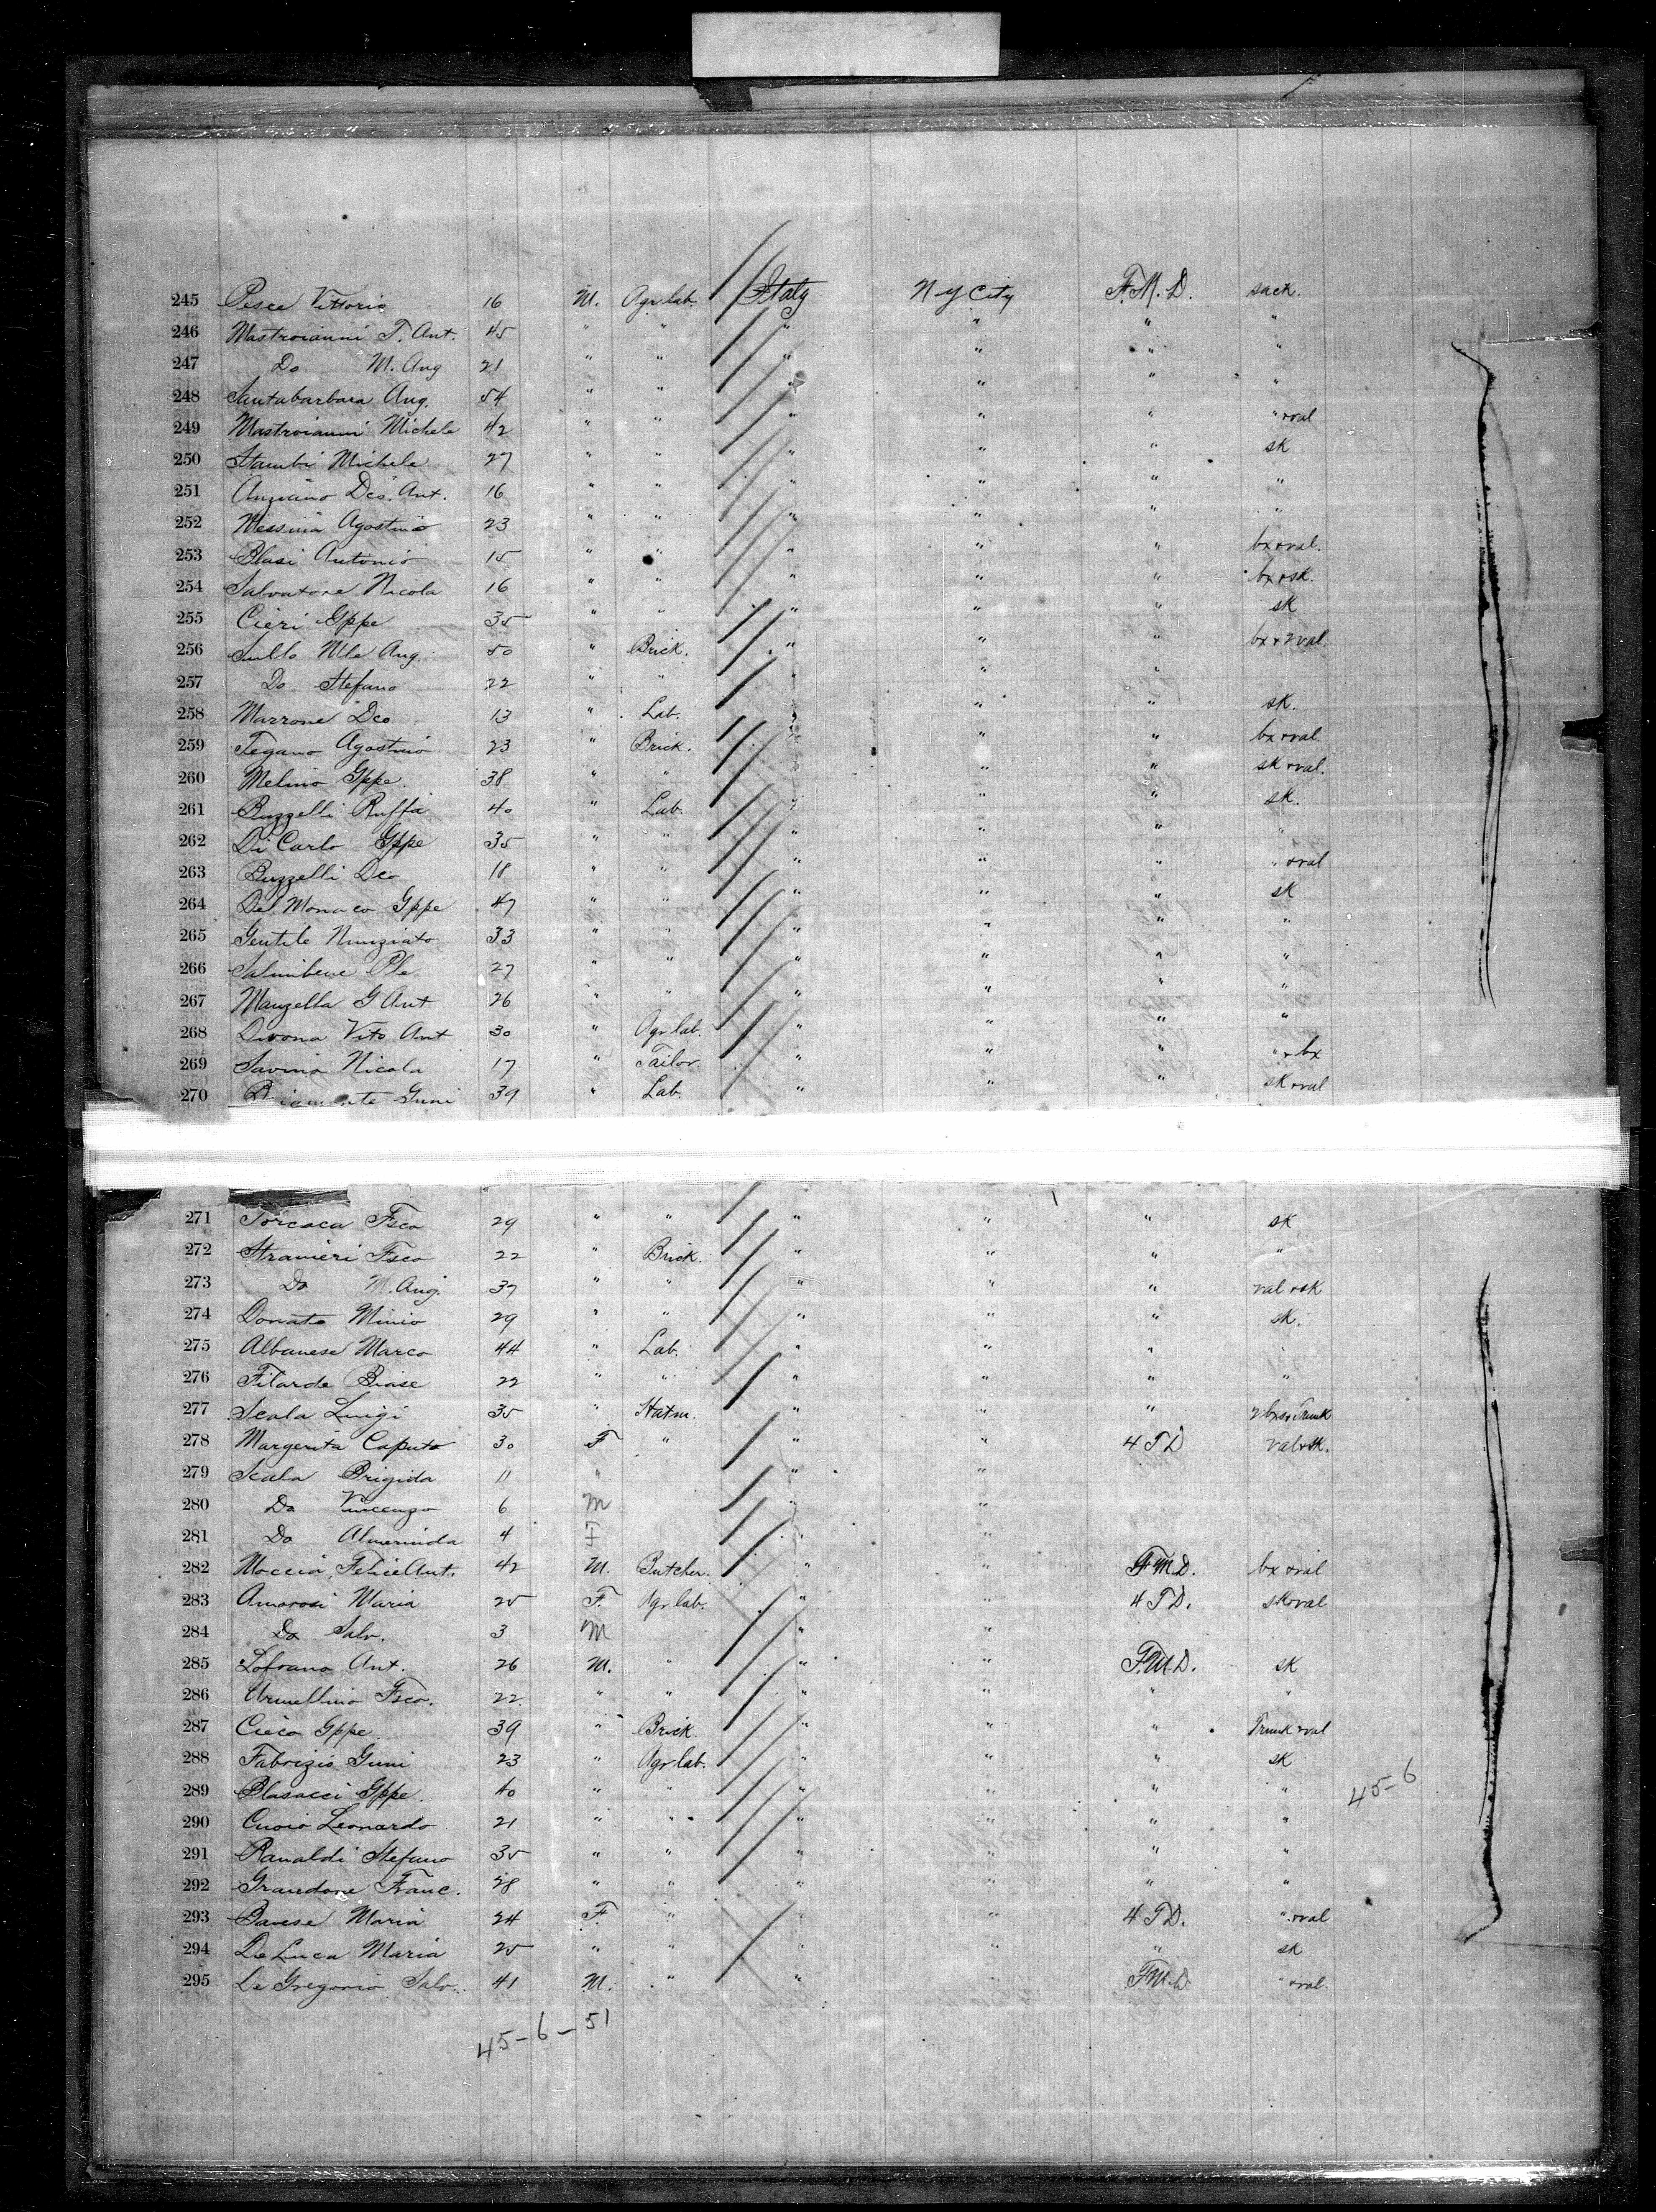 245 Pesce Vittorio 16 M. Agr lab. Italy N Y City F.M.D. sack.
246 Mastroianni F. Ant. 45 " " " " " "
247 Do M. Ang 21 " " " " " "
248 Santabarbara Ang. 54 " " " " " "
249 Mastroianni Michele 42 " " " " " " + val
250 Stambi Michele 27 " " " " " sk
251 Anziano Dco. Ant. 16 " " " " " "
252 Messina Agostino 23 " " " " " "
253 Blasi Antonio 15 " " " " " bx + val.
254 Salvatore Nicola 16 " " " " " bx + sk.
255 Cieri Gppe 35 " " " " " sk
256 Sullo Mle Ang. 50 " Brick. " " " bx + 2 val
257 Do Stefano 22 " " "
258 Marrone Dco 13 " Lab. " " " sk.
259 Tegano Agostino 23 " Brick. " " " bx + val
260 Melino Gppe. 38 " " " " " sk + val.
261 Buzzelli Ruffa 40 " Lab. " " " sk.
262 Di Carlo Gppe 35 " " " " " "
263 Buzzelli Dco 18 " " " " " " + val
264 Del Monaco Gppe 47 " " " " " sk
265 Gentile Nunziato 33 " " " " " "
266 Salmibene Ple 27 " " " " " "
267 Manzella G Ant 26 " " " " " "
268 Divona Vito Ant 30 " Agr lab. " " " "
269 Savino Nicola 17 " Tailor. " " " " + bx
270 39 " Lab. " " " sk + val
271 Torcaca Fsco 29 " " " " " sk
272 Stranieri Fsco 22 " Brick. " " " "
273 Do M. Ang. 37 " " " " " val + sk
274 Donato Minio 29 " " " " " sk.
275 Albanese Marco 44 " Lab. " " " "
276 Filarde Biase 22 " " " " " "
277 Scala Luigi 35 " Hatm. " " " 2 bxs + Trunk
278 Margerita Caputo 30 F " " " 4 T D val + sk.
279 Scala Brigida 11 " " "
280 Do Vincenzo 6 M " "
281 Do Almerinda 4 F " "
282 Moccia Felice Ant. 42 M. Butcher. " " F.M.D. bx + val
283 Amorosi Maria 25 F. Agr lab. " " 4 T D. sk + val
284 Do Salv. 3 M " "
285 Lofrano Ant. 26 M. " " " F.M.D. sk
286 Armellino Fsco. 22 " " " " " "
287 Cieco Gppe 39 " Brick " " " Trunk + val
288 Fabrizio Guni 23 " Agr lab. " " " sk
289 Blasacci Gppe. 40 " " " " " " 45-6
290 Cuoio Leonardo 21 " " " " " "
291 Ranaldi Stefano 35 " " " " " "
292 Grandone Franc. 28 " " " " " "
293 Barese Maria 24 F. " " " 4 T D. " + val
294 De Luca Maria 25 " " " " " sk
295 De Gregorio Salv. 41 M. " " " F.M.D " + val.
45-6-51